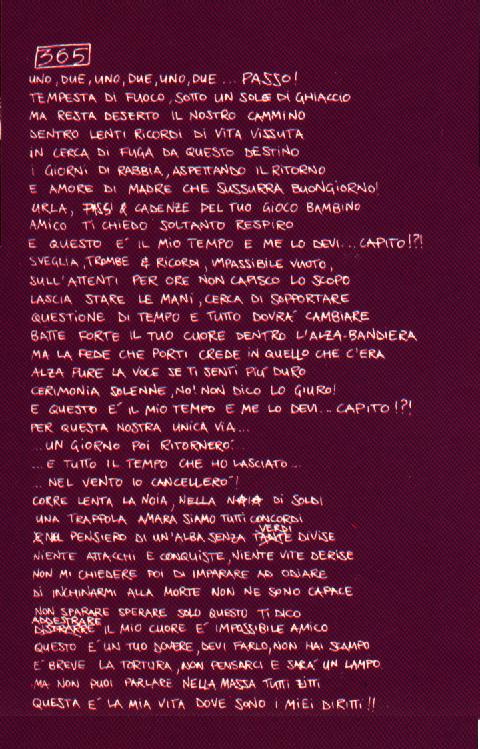 365
UNO, DUE, UNO, DUE, UNO, DUE ... PASSO!
TEMPESTA DI FUOCO, SOTTO UN SOLE DI GHIACCIO
MA RESTA DESERTO IL NOSTRO CAMMINO
DENTRO LENTI RICORDI DI VITA VISSUTA
IN CERCA DI FUGA DA QUESTO DESTINO
I GIORNI DI RABBIA, ASPETTANDO IL RITORNO
E AMORE DI MADRE CHE SUSSURRA BUONGIORNO!
URLA, PASSI & CADENZE DEL TUO GIOCO BAMBINO
AMICO TI CHIEDO SOLTANTO RESPIRO
E QUESTO E' IL MIO TEMPO E ME LO DEVI... CAPITO!?!
SVEGLIA, TROMBE & RICORDI, IMPASSIBILE VUOTO,
SULL'ATTENTI PER ORE NON CAPISCO LO SCOPO
LASCIA STARE LE MANI, CERCA DI SOPPORTARE
QUESTIONE DI TEMPO E TUTTO DOVRA' CAMBIARE
BATTE FORTE IL TUO CUORE DENTRO L'ALZA-BANDIERA
MA LA FEDE CHE PORTI CREDE IN QUELLO CHE C'ERA
ALZA PURE LA VOCE SE TI SENTI PIU' DURO
CERIMONIA SOLENNE, NO! NON DICO LO GIURO!
E QUESTO E' IL MIO TEMPO E ME LO DEVI... CAPITO!?!
PER QUESTA NOSTRA UNICA VIA...
...UN GIORNO POI RITORNERO'
...E TUTTO IL TEMPO CHE HO LASCIATO...
...NEL VENTO IO CANCELLERO'!
CORRE LENTA LA NOIA, NELLA DI SOLDI
UNA TRAPPOLA AMARA SIAMO TUTTI CONCORDI
& NEL PENSIERO DI UN'ALBA SENZA TANTE VERDI DIVISE
NIENTE ATTACCHI E CONQUISTE, NIENTE VITE DERISE
NON MI CHIEDERE POI DI IMPARARE AD ODIARE
DI INCHINARMI ALLA MORTE NON NE SONO CAPACE
NON SPARARE SPERARE SOLO QUESTO TI DICO
ADDESTRARE
DISTRARRE IL MIO CUORE E' IMPOSSIBILE AMICO
QUESTO E' UN TUO DOVERE, DEVI FARLO, NON HAI SCAMPO
E' BREVE LA TORTURA, NON PENSARCI E SARA' UN LAMPO
MA NON PUOI PARLARE NELLA MASSA TUTTI ZITTI
QUESTA E' LA MIA VITA DOVE SONO I MIEI DIRITTI!!